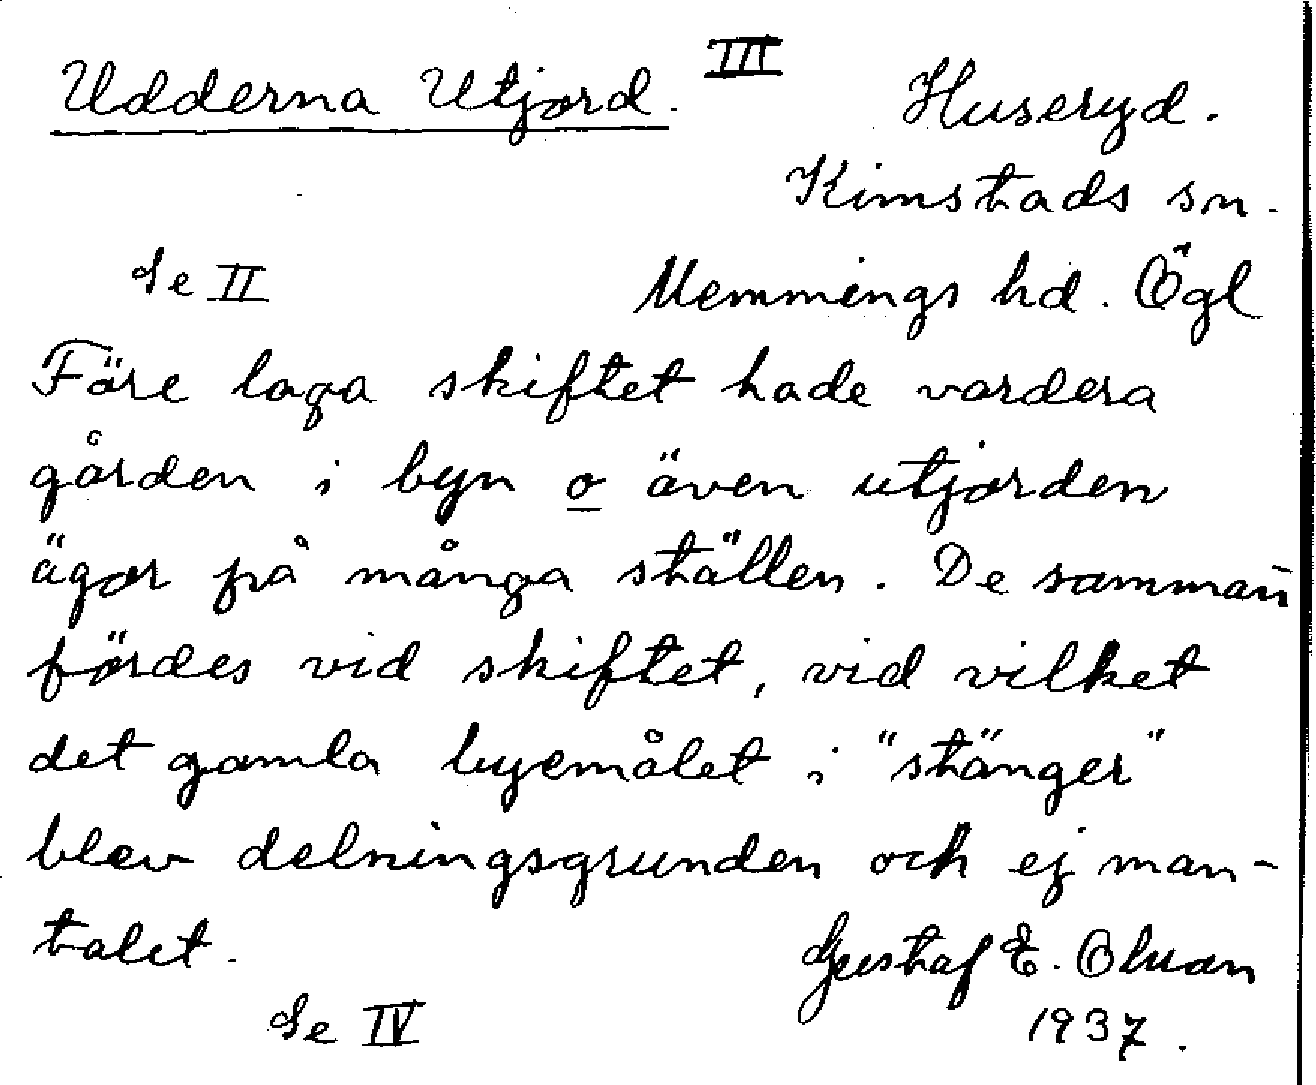 Udderna Utjord. III Huseryd.
Kimstads sn.
Se II Memmings hd. Ögl
Före laga skiftet hade vardera
gården i byn o även utjorden
ägor på många ställen. De samman
fördes vid skiftet, vid vilket
det gamla byemålet i "stänger"
blev delningsgrunden och ej man-
talet. Gustaf E.
Se IV 1937.